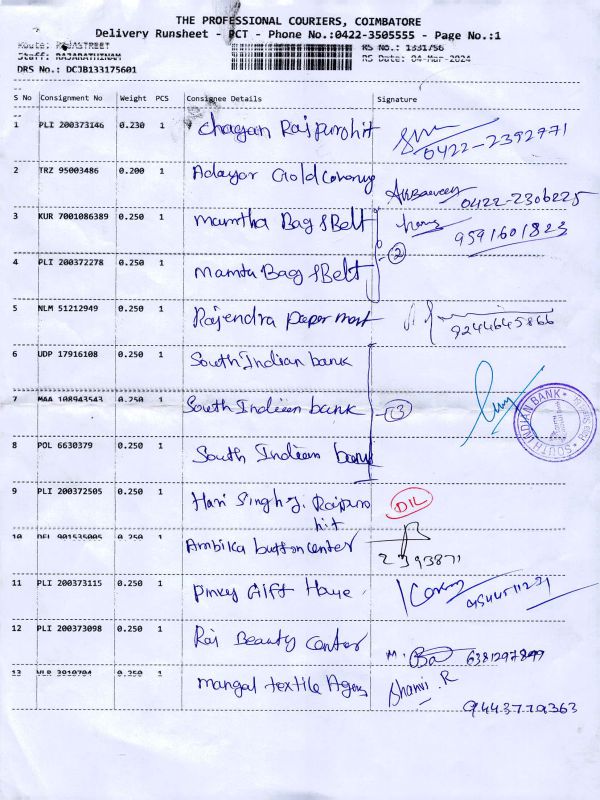 THE PROFESSIONAL COURIERS, COIMBATORE
Delivery Runsheet - PCT - Phone No.:0422-3505555 - Page No.:1
Route: RAJASTREET RS No.: 1331756
Staff: RAJARATHINAM RS Date: 04-Mar-2024
DRS No.: DCJB133175601
S No Consignment No Weight PCS Consignee Details Signature
1 PLI 200373146 0.230 1 Chagan Rajpurohit 0422-2392771
2 TRZ 95003486 0.200 1 Adayar Gold Covering 0422-2306225
3 KUR 7001086389 0.250 1 Mamtha Bag & Belt 9591601823
2
4 PLI 200372278 0.250 1 Mamta Bag & Belt
5 NLM 51212949 0.250 1 Rajendra paper mart 9244645866
6 UDP 17916108 0.250 1 South Indian bank
7 MAA 108943543 0.250 1 South Indian bank 3
SOUTH INDIAN BANK
8 POL 6630379 0.250 1 South Indian bank
9 PLI 200372505 0.250 1 Hari Singh. J. Rajpuro DIL
hit
10 DEL 901535005 0.250 1 Ambika button center 2393871
11 PLI 200373115 0.250 1 Pinky Gift House
12 PLI 200373098 0.250 1 Raj Beauty Center M. 6381297899
13 VLR 3910704 0.250 1 Mangal textile Agency R
9443779363